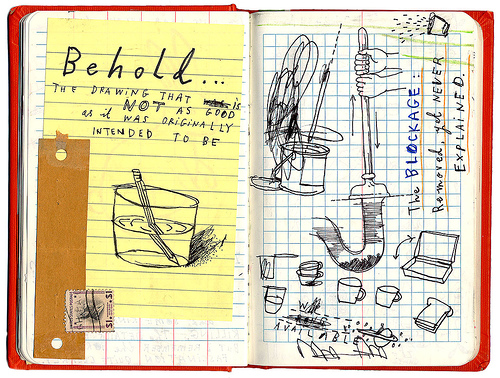 Behold...
THE DRAWING THAT IS
NOT AS GOOD
as it WAS ORIGINALLY
INTENDED TO BE
The BLOCKAGE:
Removed, yet NEVER
EXPLAINED.
AVAILABLE